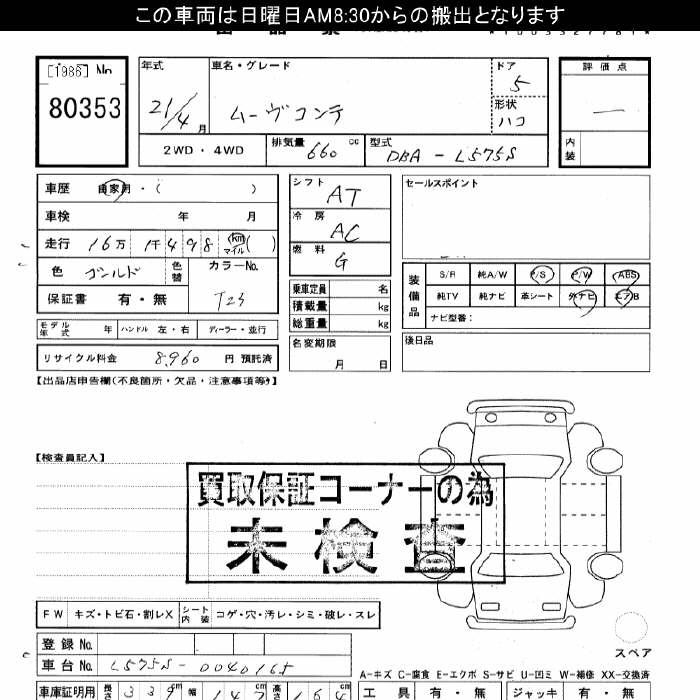 この車両は日曜日AM8:30からの搬出となります
[1986] No
80353
年式 21/4 月
車名・グレード ムーヴコンテ
ドア 5
形状 ハコ
評価点 —
内装
2WD・4WD
排気量 660 cc
型式 DBA-L575S
車歴 自家用・( )
車検 年 月
走行 16万 1千498 km マイル ( )
色 ゴールド 色替
カラーNo. T23
保証書 有・無
モデル年式 年 ハンドル 左・右 ディーラー・並行
リサイクル料金 8,960 円 預託済
シフト AT
冷房 AC
燃料 G
乗車定員 名
積載量 kg
総重量 kg
名変期限 月 日
セールスポイント
装備品
S/R 純A/W P/S P/W ABS
純TV 純ナビ 革シート 外ナビ エアB
ナビ型番:
後日品
【出品店申告欄(不良箇所・欠品・注意事項等)】
【検査員記入】
買取保証コーナーの為
未検査
FW キズ・トビ石・割レX シート内装 コゲ・穴・汚レ・シミ・破レ・スレ
登録No.
車台No. L575S-0040165
スペア
A-キズ C-腐食 E-エクボ S-サビ U-凹ミ W-補修 XX-交換済
車庫証明用 長さ 339 cm 幅 147 高さ 164 cm
工具 有・無 ジャッキ 有・無